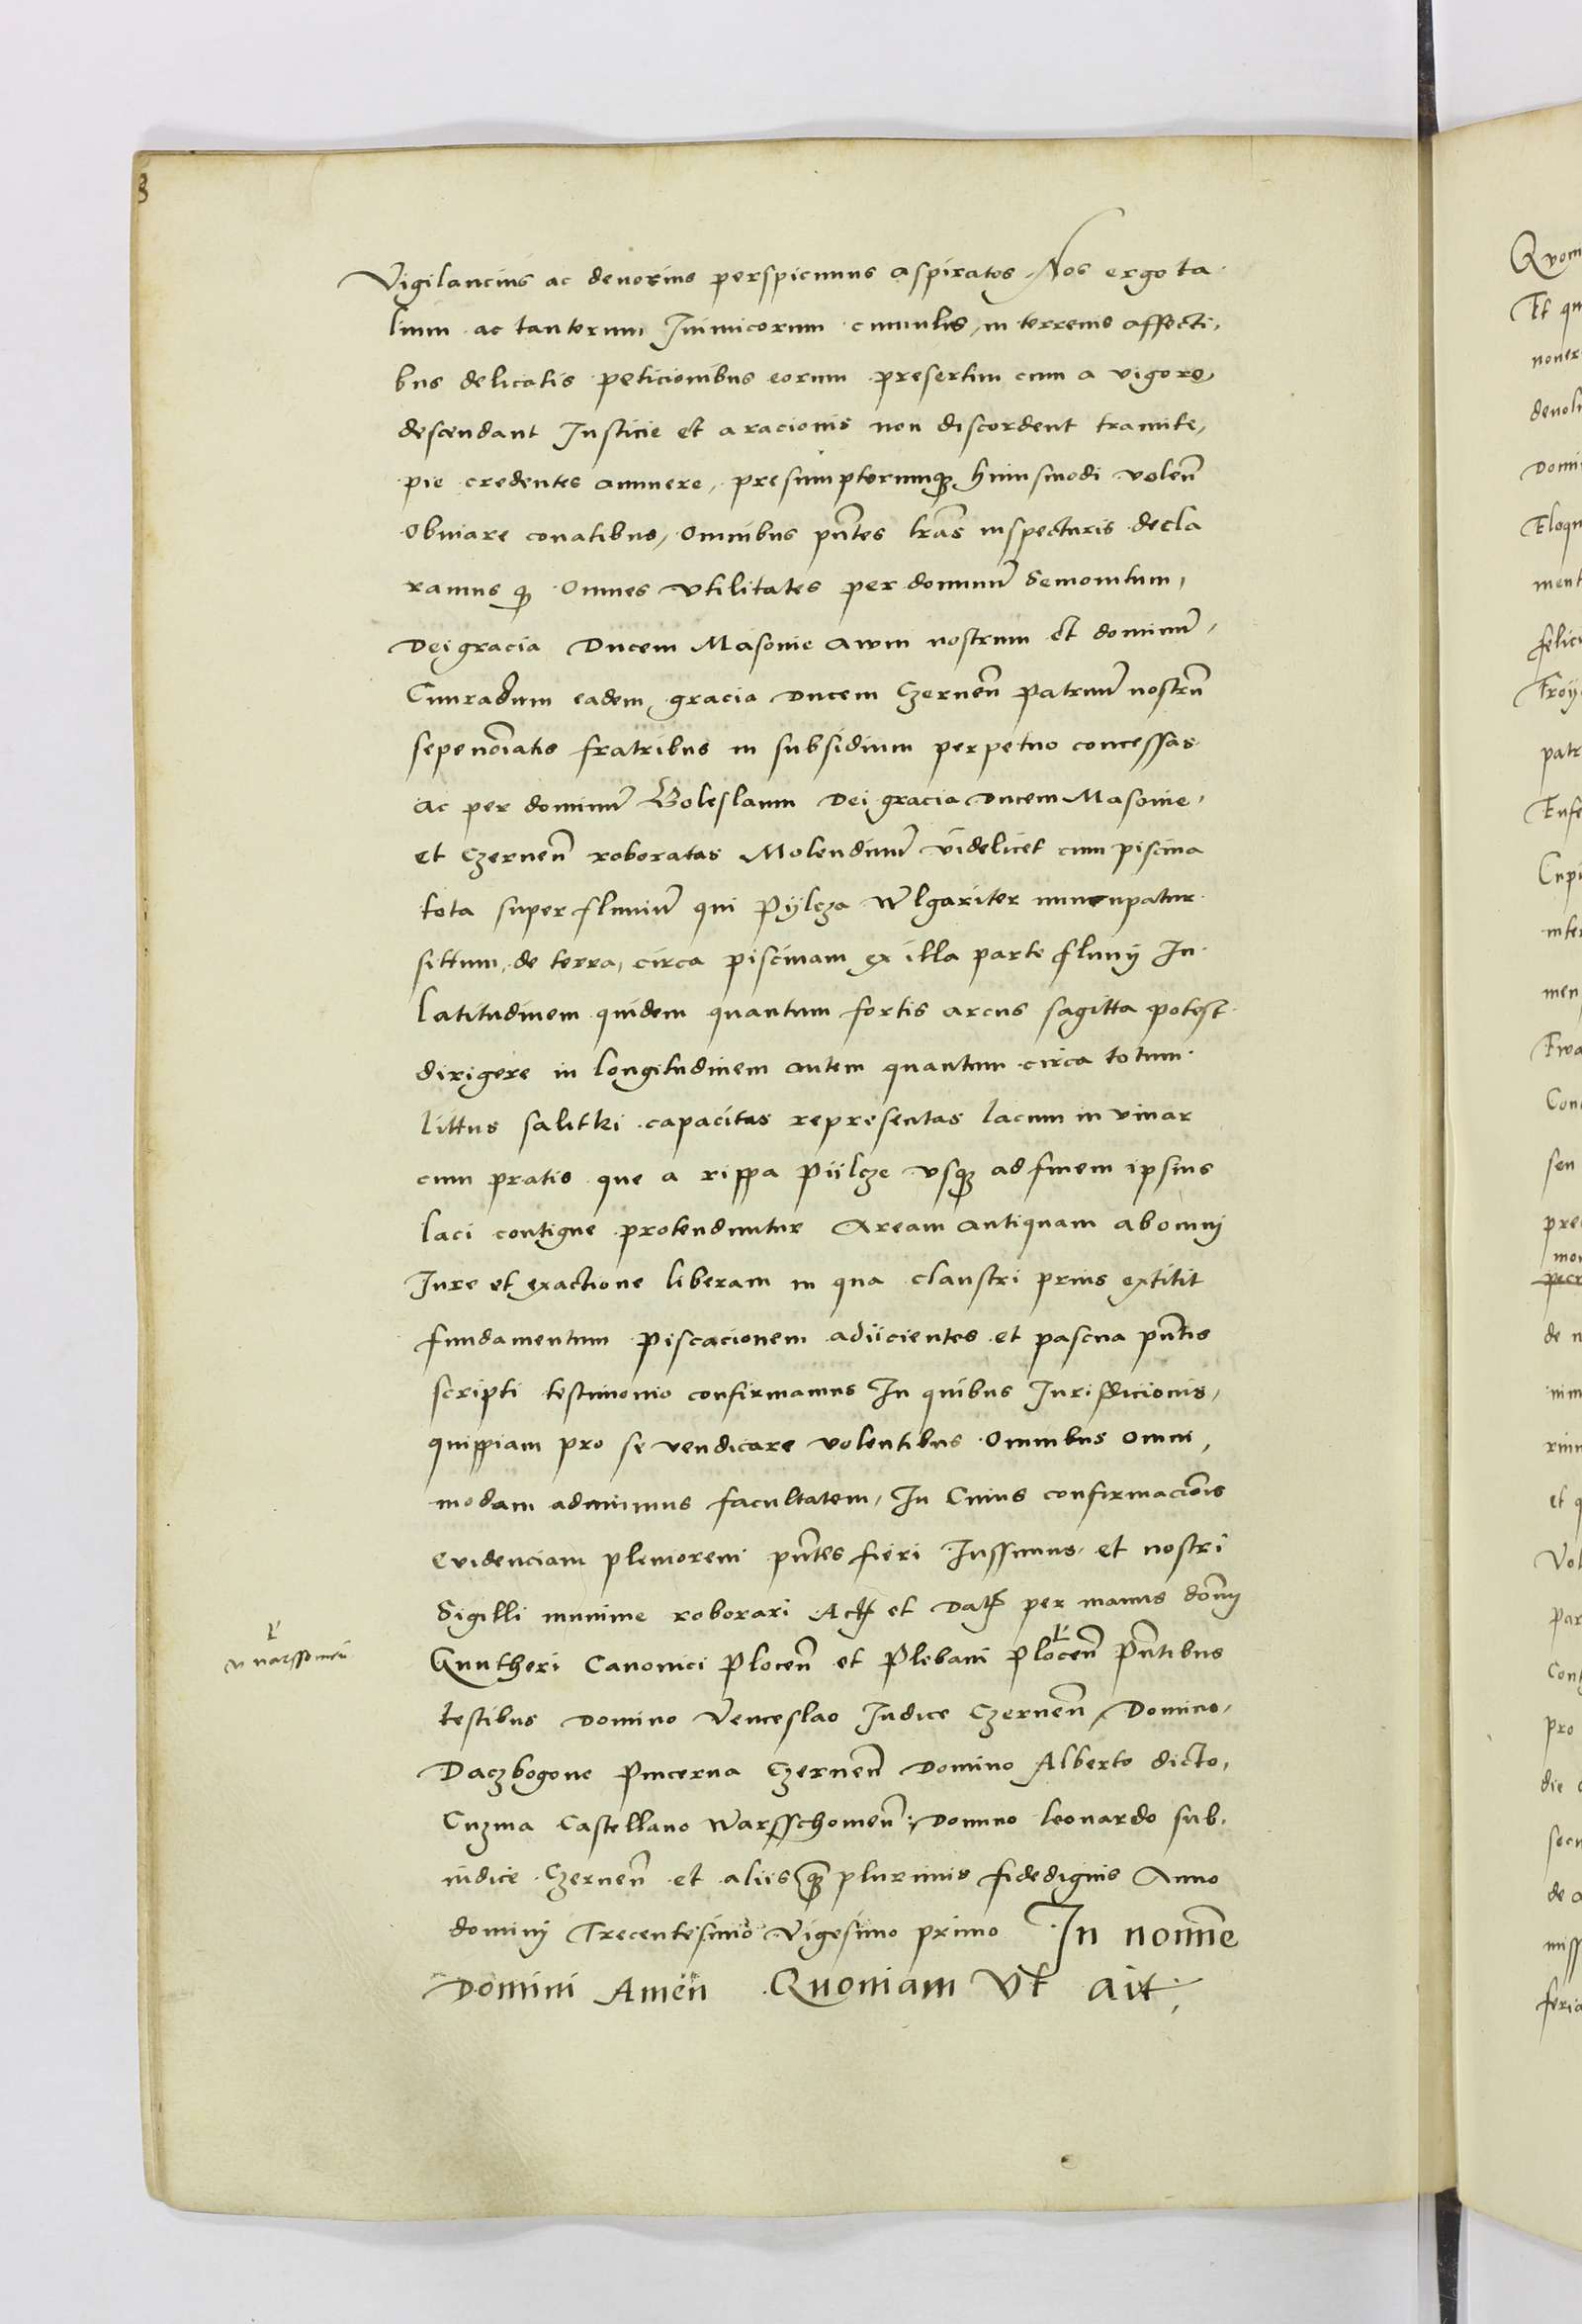 3
Vigilancius ac devocius perspicimus aspiratos Nos ergo ta
lium ac tantorum Inimicorum cumulis, in terrenis affecti,
bus delicatis peticionibus eorum presertim cum a vigore,
descendant Justicie et a racionis non discordent tramite,
pie credentes annuere, presumptorumq huiusmodi volen̄
Obviare conatibus, Omnibus pn̄tes lrās inspecturis decla
ramus q Omnes Vtilitates per dominū Semovitum,
Dei gracia Ducem Masovie avum nostrum et dominū,
Cunradum eadem gracia Ducem Czernen̄ Patruū nostrū
sepenoīatis fratribus in subsidium perpetuo concessas
ac per dominū Boleslaum Dei gracia Ducem Masovie,
et Czernen̄ roboratas Molendinū videlicet cum piscina
tota super fluviū qui Pÿlcza Wlgariter nuncupatur
sittum, de terra, circa piscinam ex illa parte fluvij In
Latitudinem quidem quantum fortis arcus sagitta potest
dirigere in longitudinem autem quantum circa totum
littus salitki capacitas representas lacum in vinar
cum pratis que a rippa Piilcze vsq ad finem ipsius
laci contigue protenduntur Aream antiquam ab omnj
Jure et exactione liberam in qua claustri prius extitit
fundamentum Piscacionem adiicientes et pascua pn̄tis
scripti testimonio confirmamus In quibus Jurisdicionis,
quippiam pro se vendicare volentibus Omnibus omni,
modam adimimus facultatem, In Cuius confirmacōis
Evidenciam pleniorem pn̄tes fieri Jussimus et nostri
Sigilli munime roborari Act et Dat per manus dōnj
Gvntheri Canonici Plocen̄ et Plebani Plocen̄ Pn̄tibus
v varssovien̄
testibus Domino Venceslao Judice Czernen̄, Domino,
Daczbogone Pincerna Czernen̄ Domino Alberto dicto,
Cuzma Castellano Warsschovien̄: Domino Leonardo sub
iudice Czernen̄ et aliis q plurimis fidedignis Anno
dominj Trecentesimo Vigesimo primo In nomīne
Domini Amen Quoniam Vt ait,